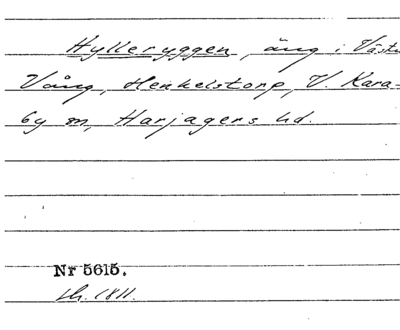 Hylleryggen, äng i Västr
Vång, Henkelstorp, V. Kara-
by sn, Harjagers hd.
Nr 5615.
sk. 1811.